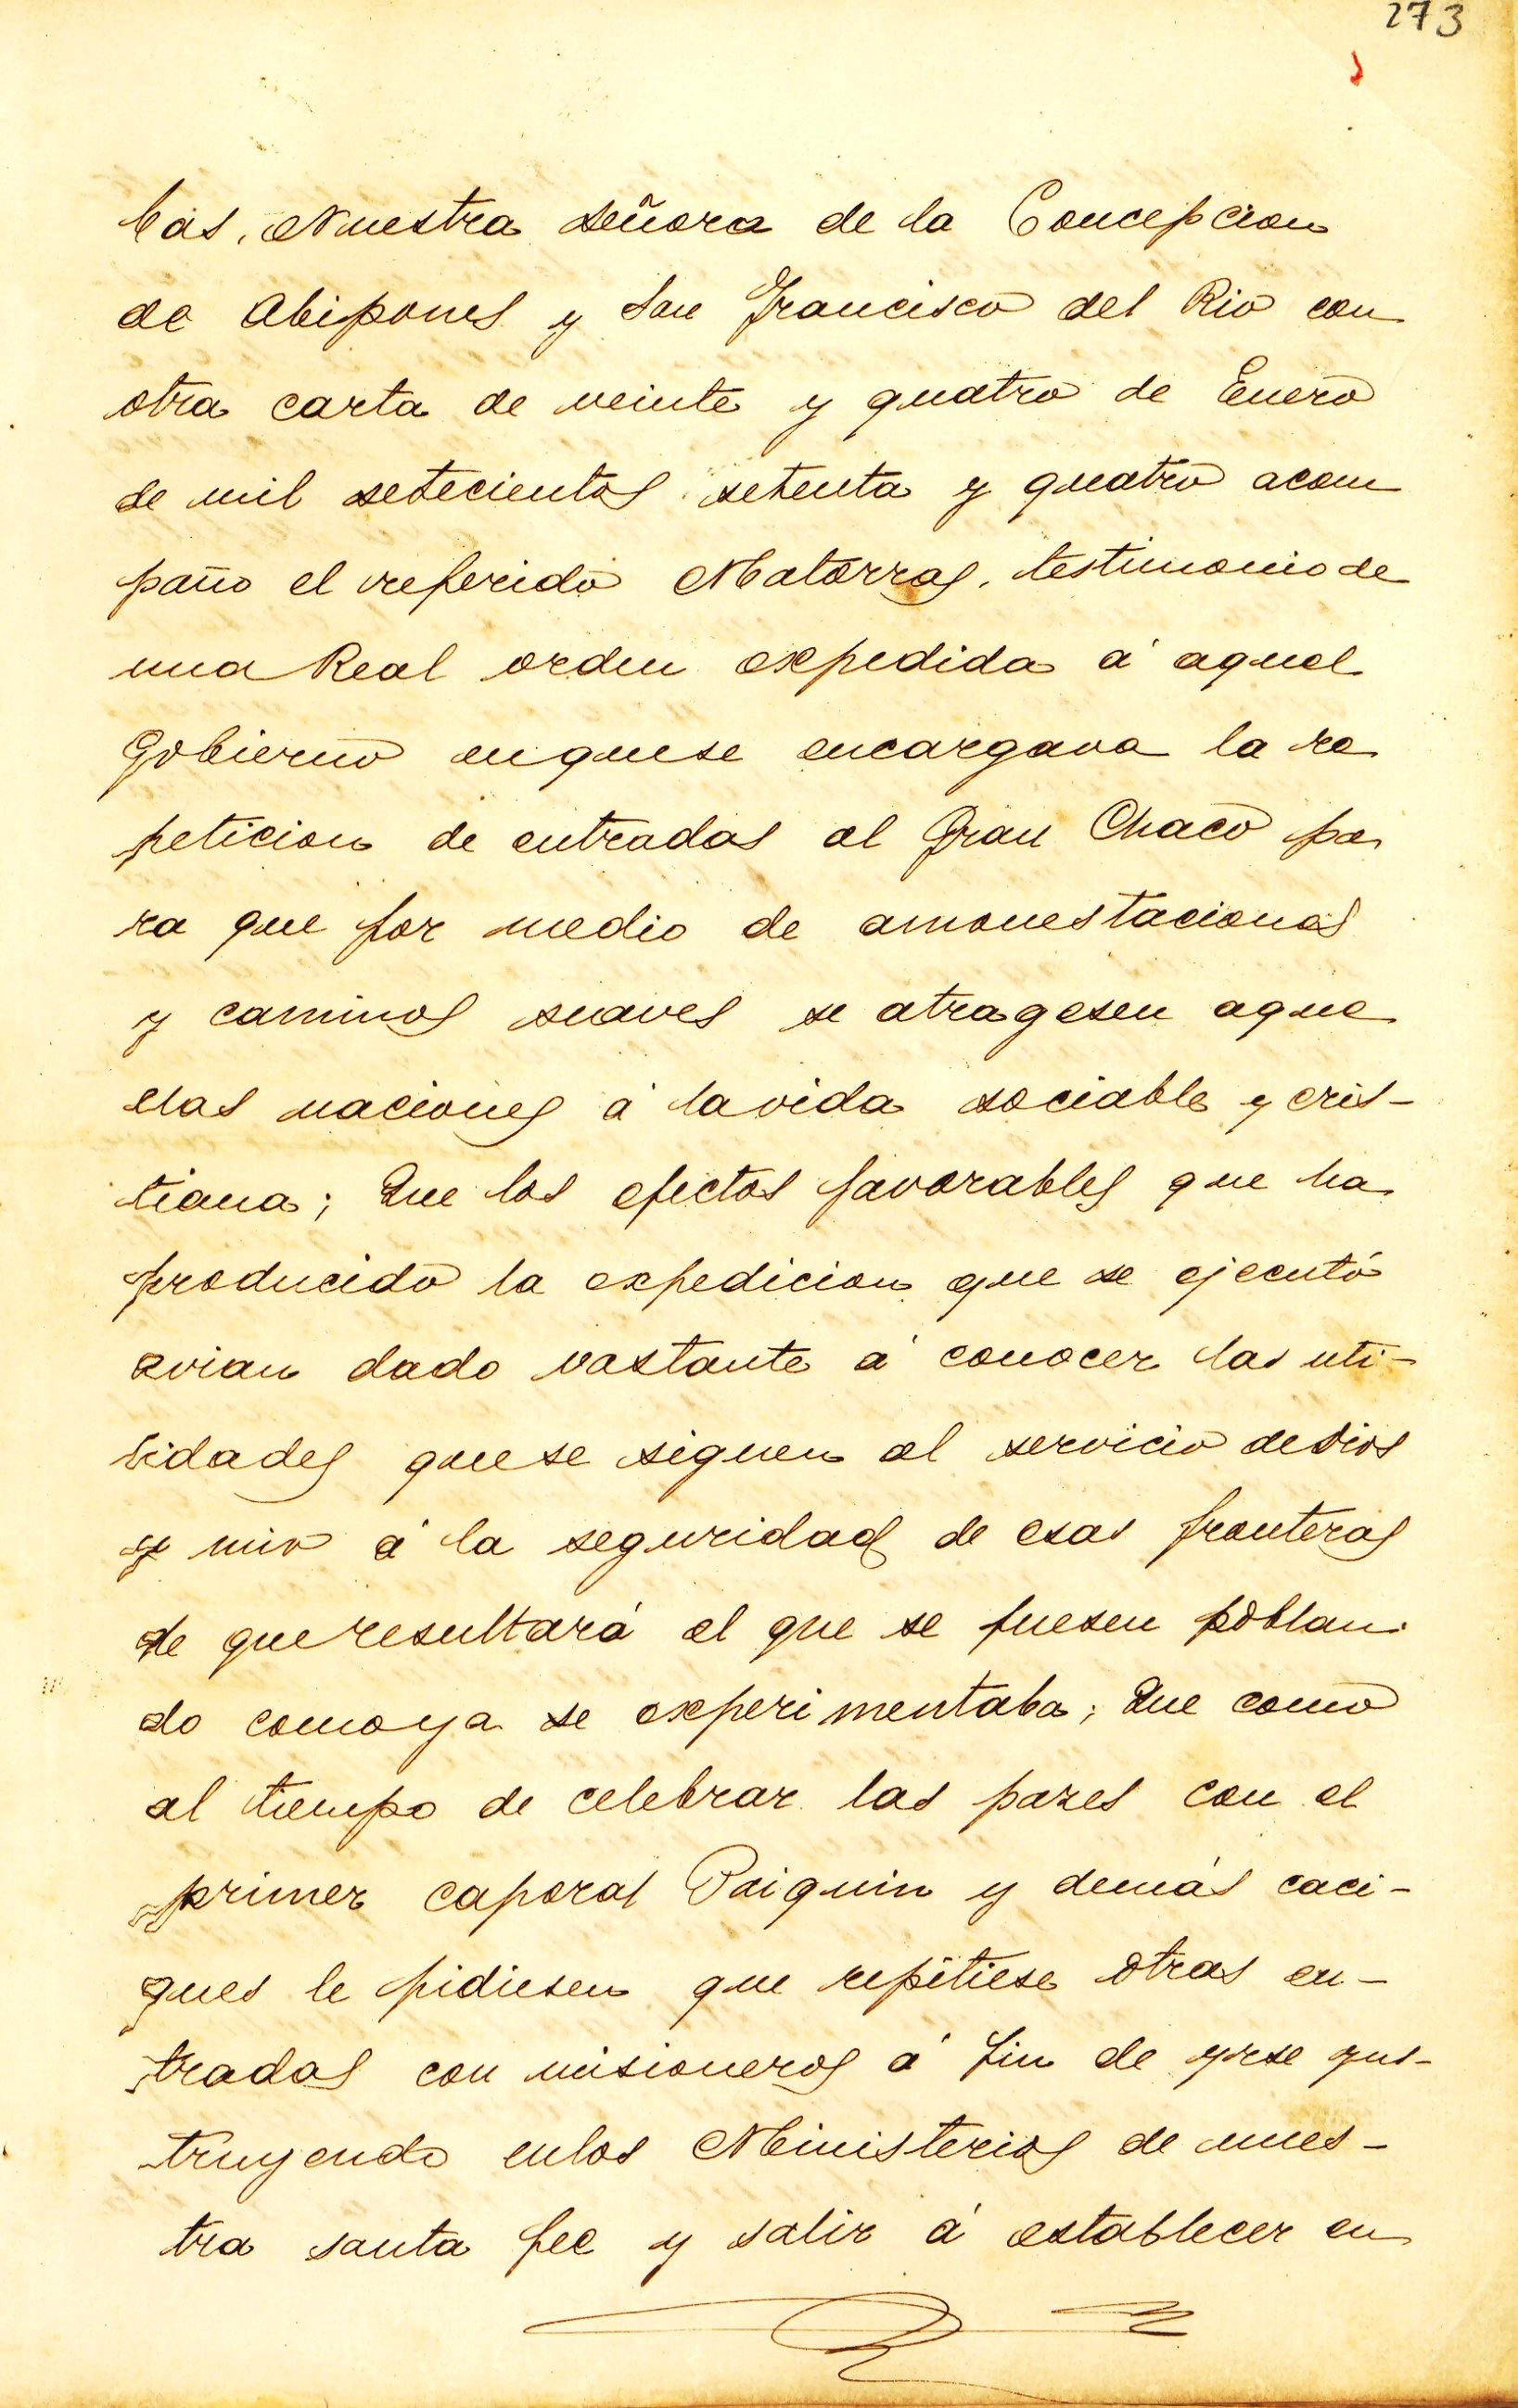 273
bas, Nuestra señora de la Concepcion
de Abipones y San Francisco del Rio con
otra carta de veinte y quatro de Enero
de mil setecientos setenta y quatro acom
paño el referido Matorras, testimonio de
una Real orden expedida á aquel
Gobierno enquese encargava la re
peticion de entradas al Gran Chaco pa
ra que por medio de amonestaciones
y caminos suaves se atragesen aque
llas naciones á lavida sociable y cris-
tiana; Que los efectos favorables que ha
producido la expedicion que se ejecutó
avian dado vastante á conocer las uti-
lidades quese siguen al servicio deDios
y mio á la seguridad de esas fronteras
de queresultará el que se fuesen poblan
do comoya se experimentaba; Que como
al tiempo de celebrar las pazes con el
primer caporal Paiquin y demás caci-
ques le pidiesen que repitiese otras en-
tradas con misioneros á fin de yrse yns-
truyendo enlos Ministerios de nues-
tra santa fee y salir á establecer en